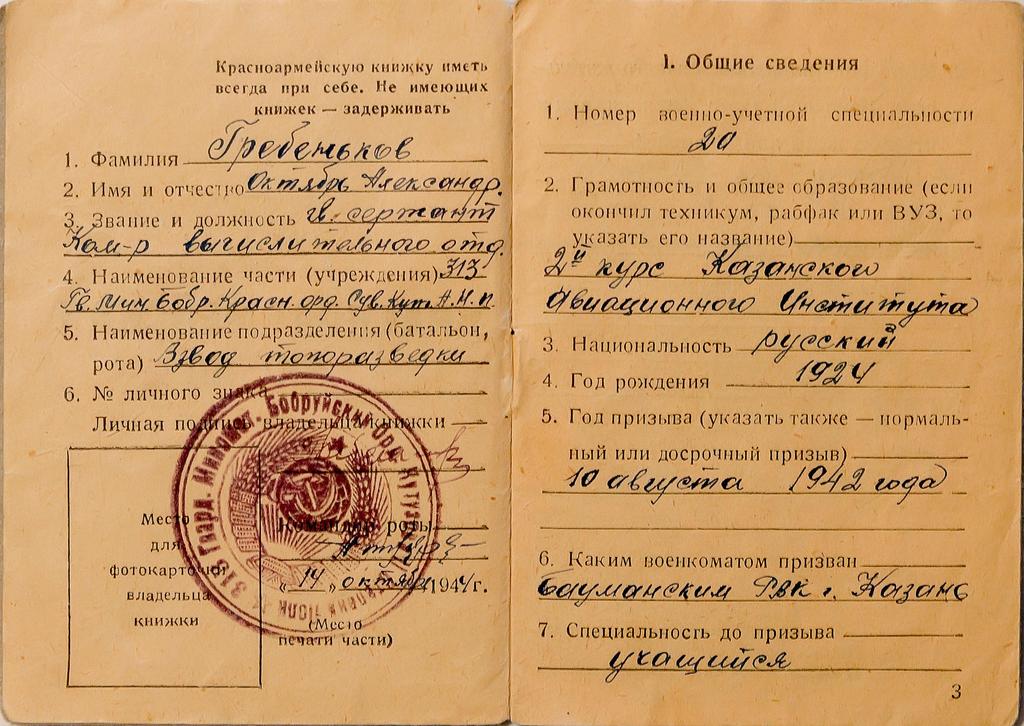 Красноармейскую книжку иметь
всегда при себе. Не имеющих
книжек — задерживать
1. Фамилия Гребеньков
2. Имя и отчество Октябрь Александр.
3. Звание и должность гв. сержант
Ком-р вычислительного отд.
4. Наименование части (учреждения) 313
Гв. Мин. Бобр. Красн. орд. Сув. Кут. А.М.п.
5. Наименование подразделения (батальон,
рота) Взвод топоразведки
6. № личного знака
Личная подпись владельца книжки
Место
для
фотокарточки
владельца
книжки
Командир роты
„14" октября 1944 г.
(Место
печати части)
313 Гвард. Миномёт. Бобруйский Орд. Кутузова
1. Общие сведения
1. Номер военно-учетной специальности
20
2. Грамотность и общее образование (если
окончил техникум, рабфак или ВУЗ, то
указать его название)
2й курс Казанского
Авиационного Института
3. Национальность русский
4. Год рождения 1924
5. Год призыва (указать также — нормаль-
ный или досрочный призыв)
10 августа 1942 года
6. Каким военкоматом призван
Бауманским РВК г. Казань
7. Специальность до призыва
учащийся
3